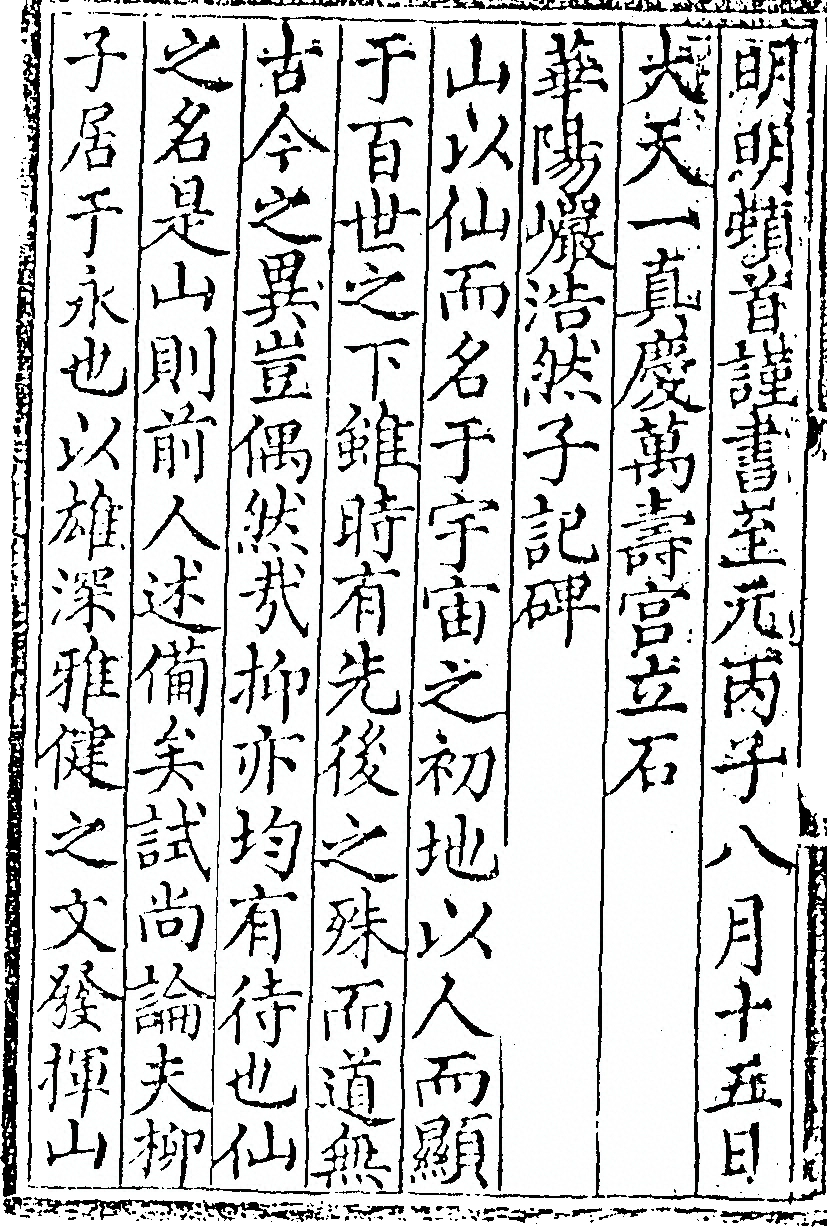 明明頓首謹書至元丙子八月十五日
大天一真慶萬壽宮立石
華陽巖浩然子記碑
山以仙而名于宇宙之初地以人而顯
于百世之下雖時有先後之殊而道無
古今之異豈偶然哉抑亦均有待也仙
之名是山則前人述備矣試尚論夫柳
子居于永也以雄深雅健之文發揮山